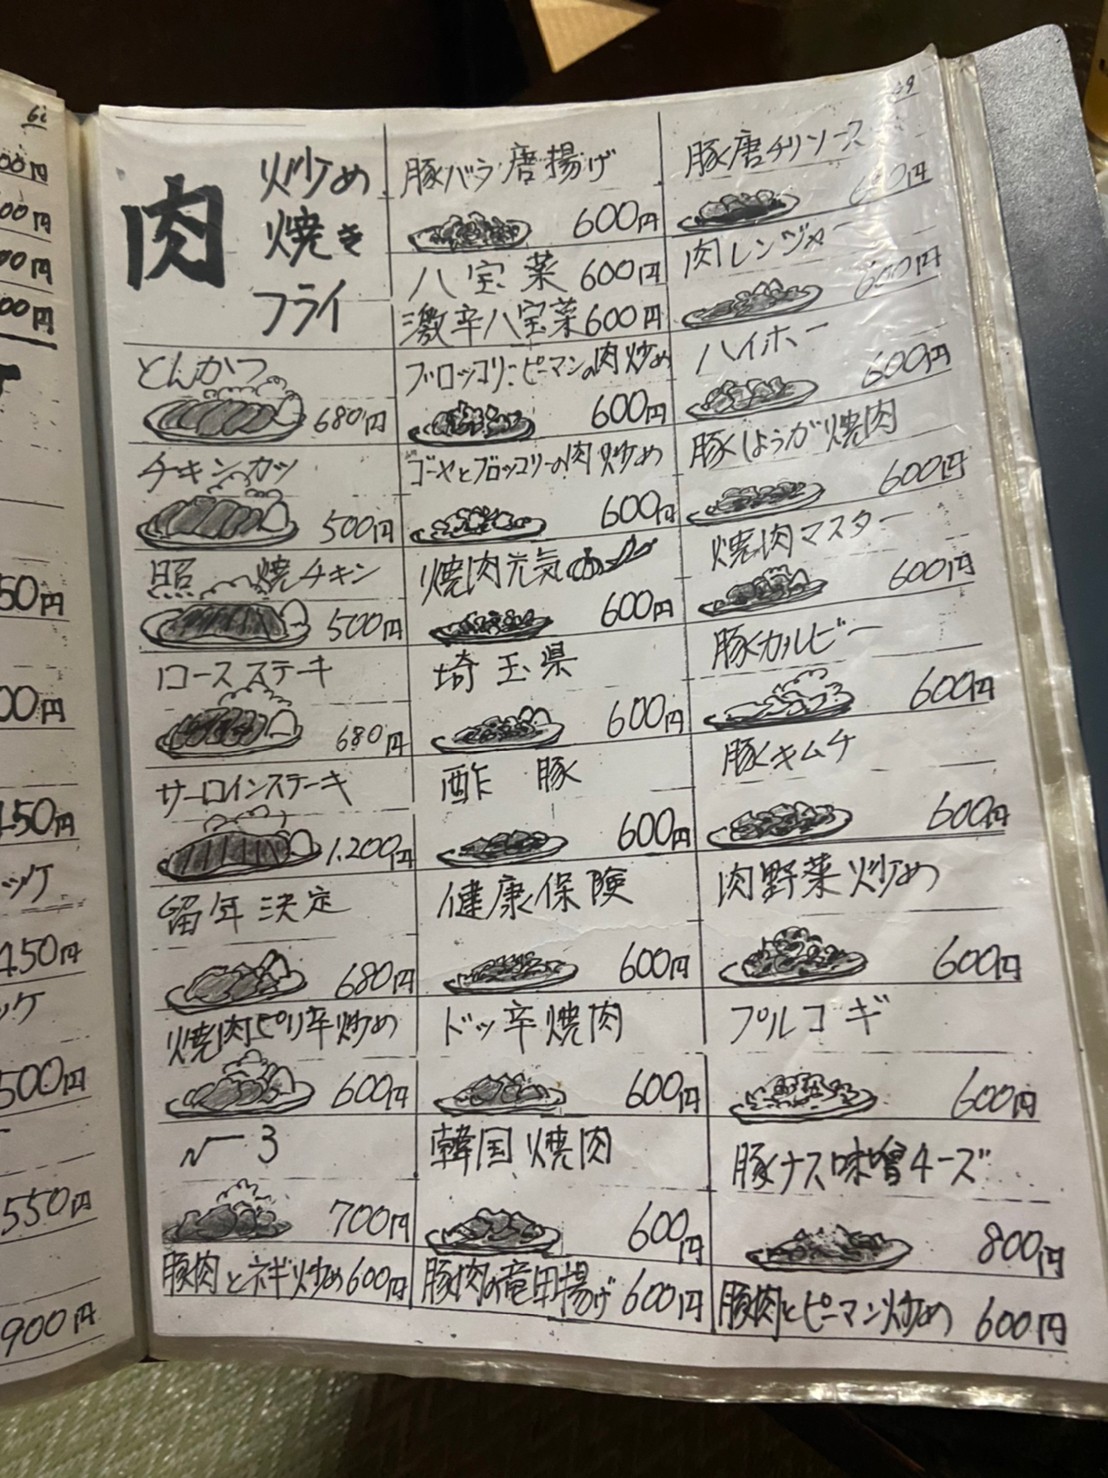 肉
炒め
焼き
フライ
とんかつ
680円
チキンカツ
500円
照焼チキン
500円
ロースステーキ
680円
サーロインステーキ
1.200円
留年決定
680円
焼肉ピリ辛炒め
600円
700円
豚肉とネギ炒め600円
豚バラ唐揚げ
600円
八宝菜 600円
激辛八宝菜600円
ブロッコリーピーマンの肉炒め
600円
ゴーヤとブロッコリーの肉炒め
600円
焼肉元気
600円
埼玉県
600円
酢豚
600円
健康保険
600円
ドッ辛焼肉
600円
韓国焼肉
600円
豚肉の竜田揚げ 600円
豚唐チリソース
600円
肉レンジャー
600円
ハイホー
600円
豚しょうが焼肉
600円
焼肉マスター
600円
豚カルビー
600円
豚キムチ
600円
肉野菜炒め
600円
プルコギ
600円
豚ナス味噌チーズ
800円
豚肉とピーマン炒め 600円
50円
450円
ッケ
450円
ッケ
500円
550円
900円